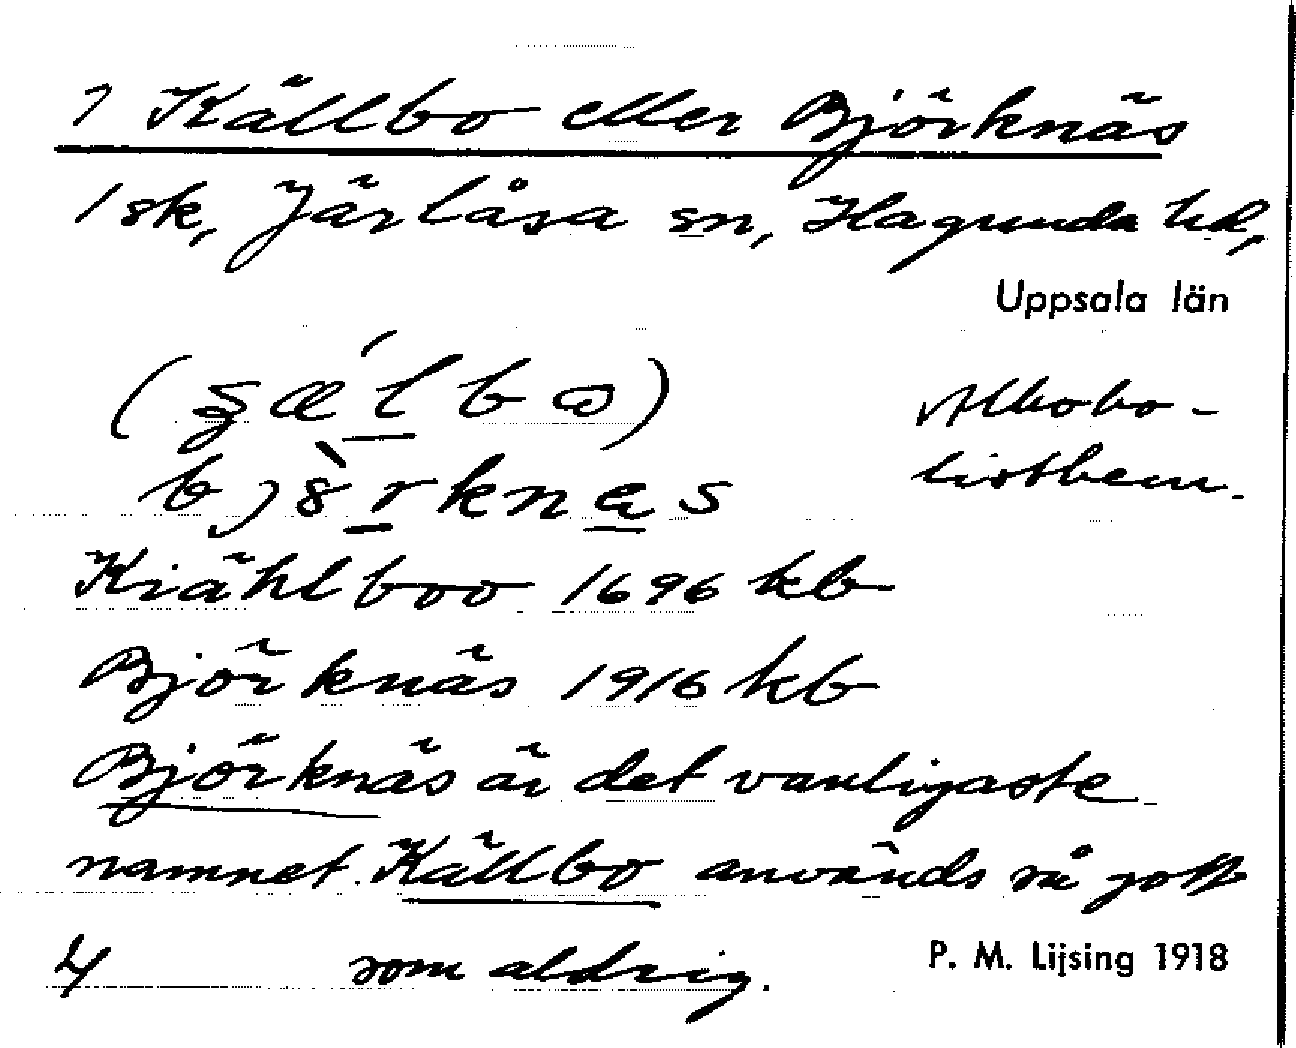 1 Källbo eller Björknäs
1 sk, Järlåsa sn, Hagunda hd,
Uppsala län
Alkoho-
listhem.
Kiählboo 1696 kb
Björknäs 1916 kb
Björknäs är det vanligaste
namnet. Källbo används så gott
4 som aldrig.
P. M. Lijsing 1918